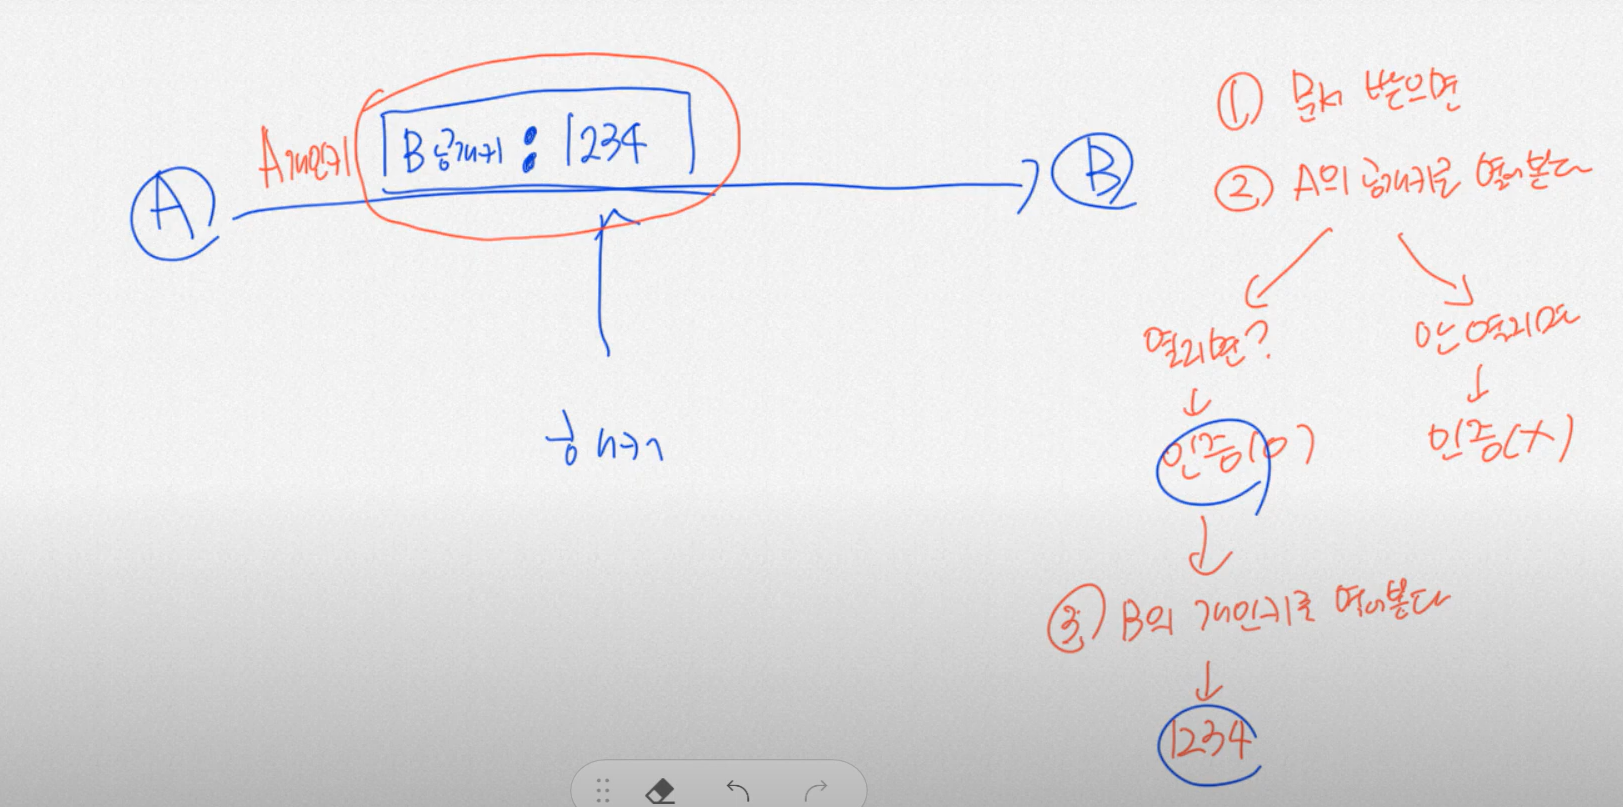 A
A개인키
B공개키 : 1234
B
① 문서 받으면
② A의 공개키로 열어본다
열리면?
안 열리면
인증(O)
인증(X)
③ B의 개인키로 열어본다
1234